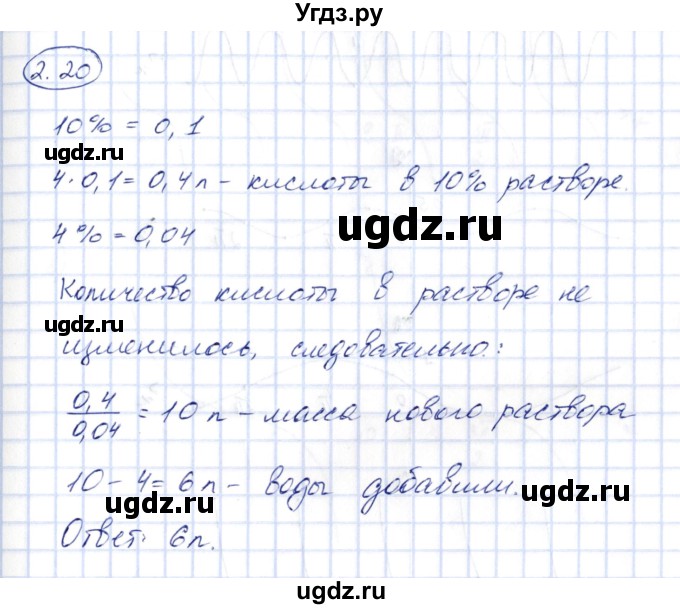 Угдз.ру
2.20
10% = 0,1
ugdz.ru
ugdz.ru
4·0,1 = 0,4 л - кислоты в 10% растворе.
ugdz.ru
4% = 0,04
Количество кислоты в растворе не
ugdz.ru
изменилось, следовательно:
0,4/0,04 = 10 л - масса нового раствора
ugdz.ru
10 - 4 = 6 л - воды добавили.
ugdz.ru
Ответ: 6 л.
ugdz.ru